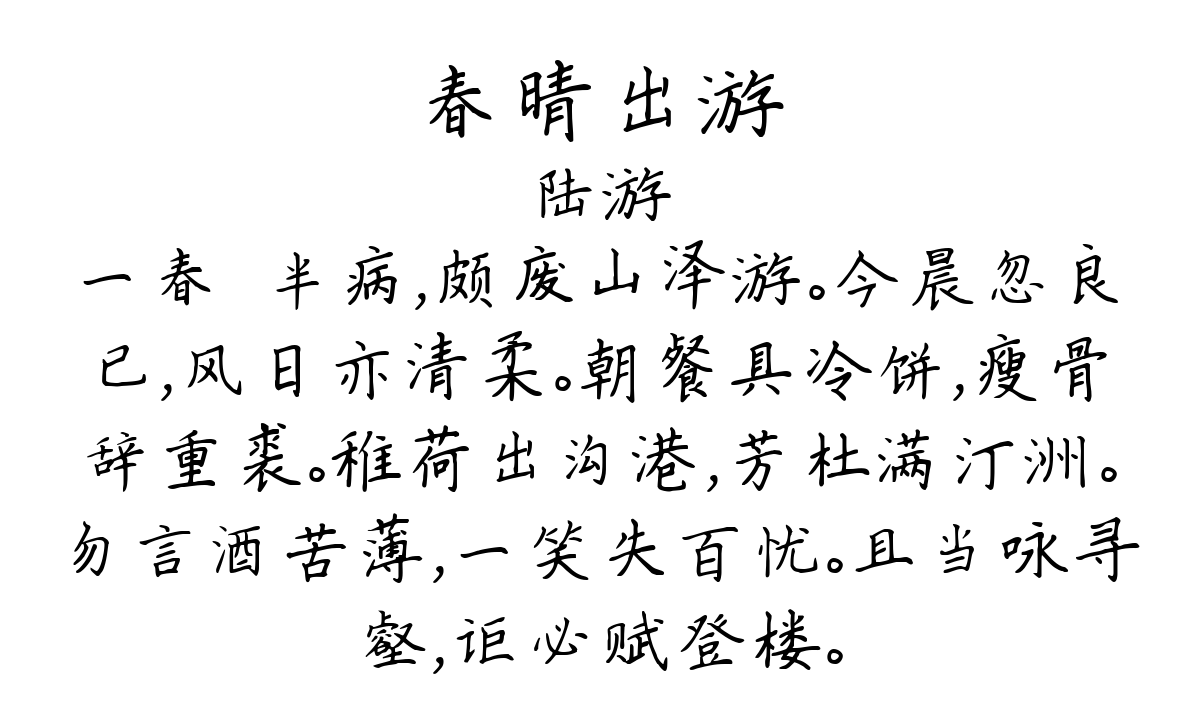 春晴出游
陆游
一春 半病,颇废山泽游。今晨忽良
已,风日亦清柔。朝餐具冷饼,瘦骨
辞重裘。稚荷出沟港,芳杜满汀洲。
勿言酒苦薄,一笑失百忧。且当咏寻
壑,讵必赋登楼。